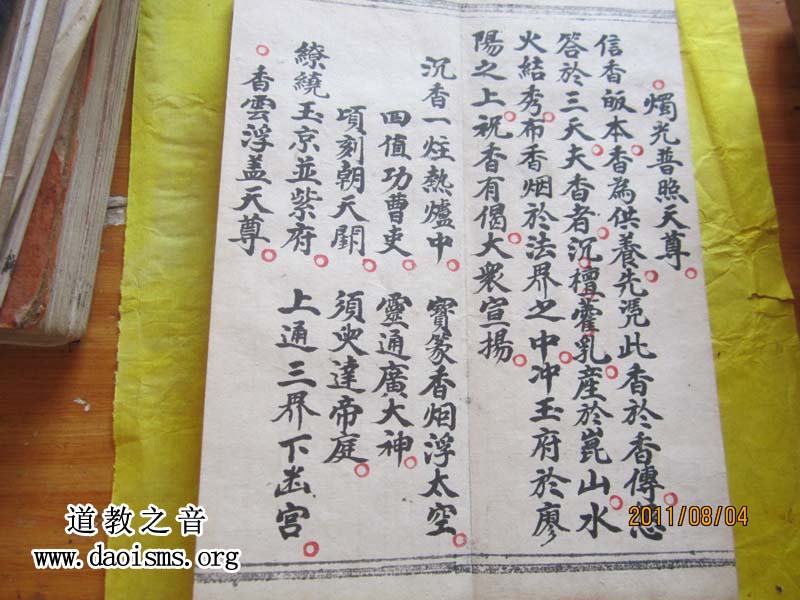 燭光普照天尊
信香皈本香為供養先凭此香於香傳愆
答於三天夫香者沉檀藿乳産於崑山水
火結秀布香烟於法界之中冲玉府於廖
陽之上祝香有偈大衆宣揚
沉香一炷熱爐中 寳篆香烟浮太空
四值功曹吏 靈通廣大神
頃刻朝天關 須臾達帝庭
繚繞玉京並紫府 上通三界下幽宫
香雲浮盖天尊
2011/08/04
道教之音
www.daoisms.org